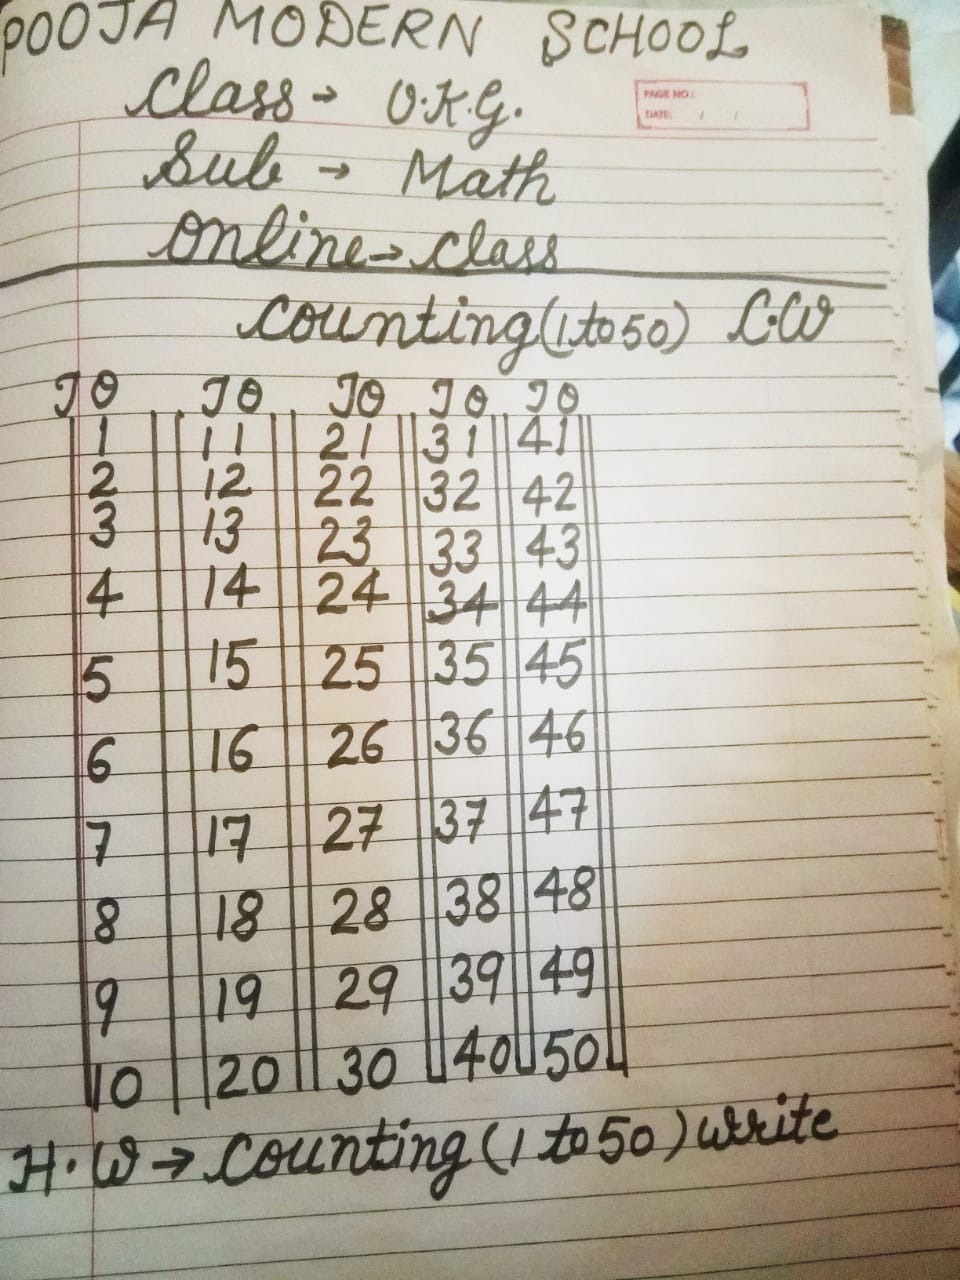 POOJA MODERN SCHOOL
Class → U.K.G.
PAGE NO.:
DATE: / /
Sub → Math
Online → Class
Counting (1 to 50) C.W
T O T O T O T O T O
1 11 21 31 41
2 12 22 32 42
3 13 23 33 43
4 14 24 34 44
5 15 25 35 45
6 16 26 36 46
7 17 27 37 47
8 18 28 38 48
9 19 29 39 49
10 20 30 40 50
H.W → Counting (1 to 50) write